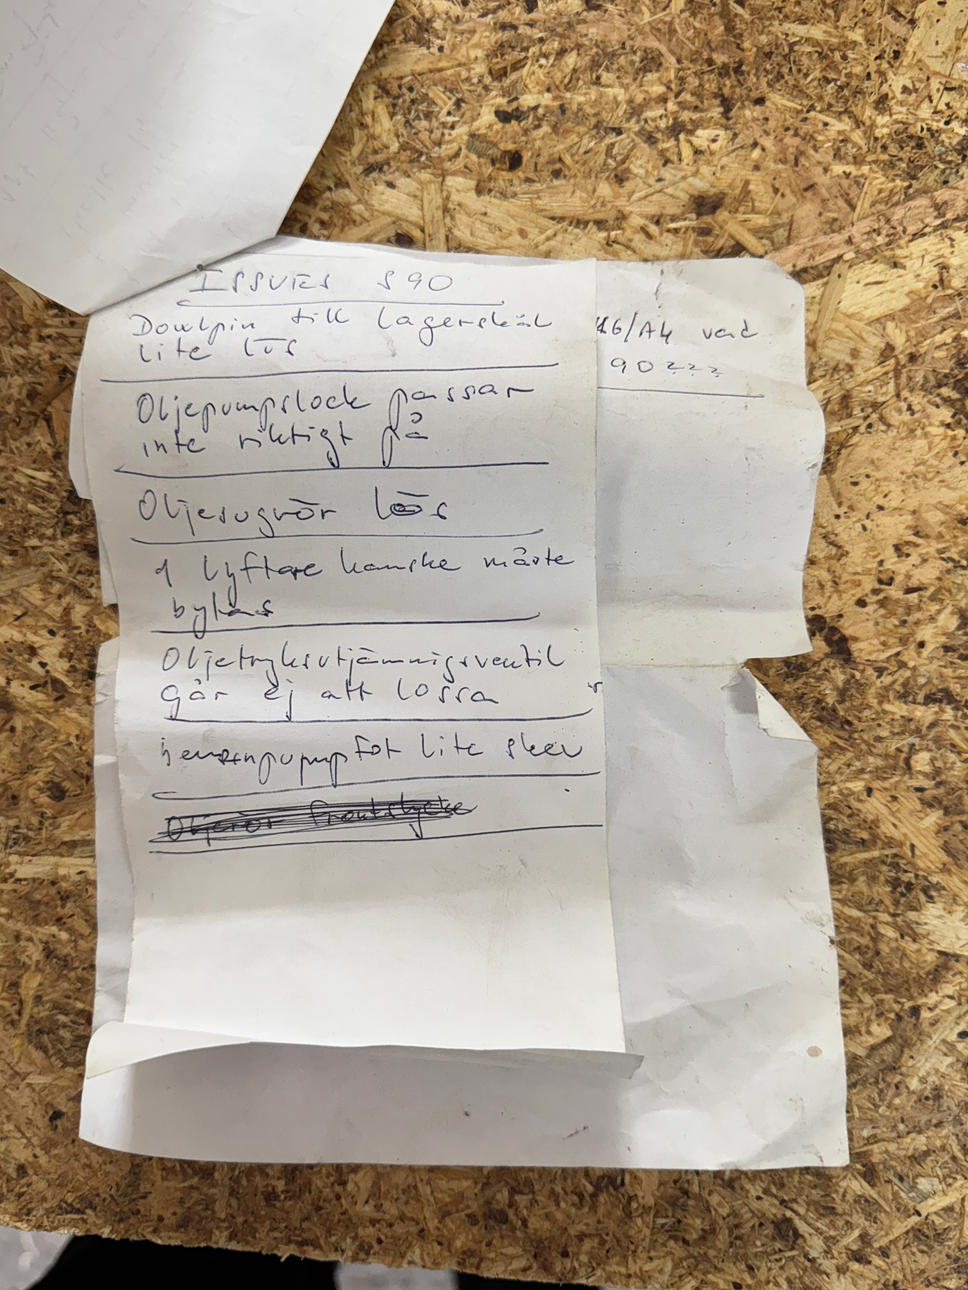 ISSUES S90
Dowlpin till lagerskål
lite lös
Oljepumpslock passar
inte riktigt på
Oljesugrör lös
1 lyftare kanske måste
bytas
Oljetryksutjämnigsventil
går ej att lossa
bensenpumpfot lite skev
Oljerör frontstycke
16/A4 vad
90???